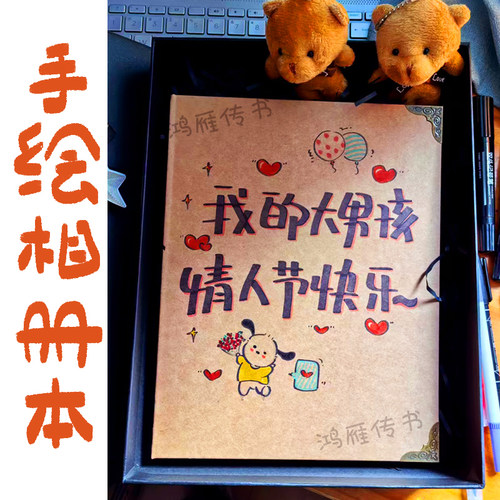 手绘相册本
鸿雁传书
我的大男孩
情人节快乐~
鸿雁传书